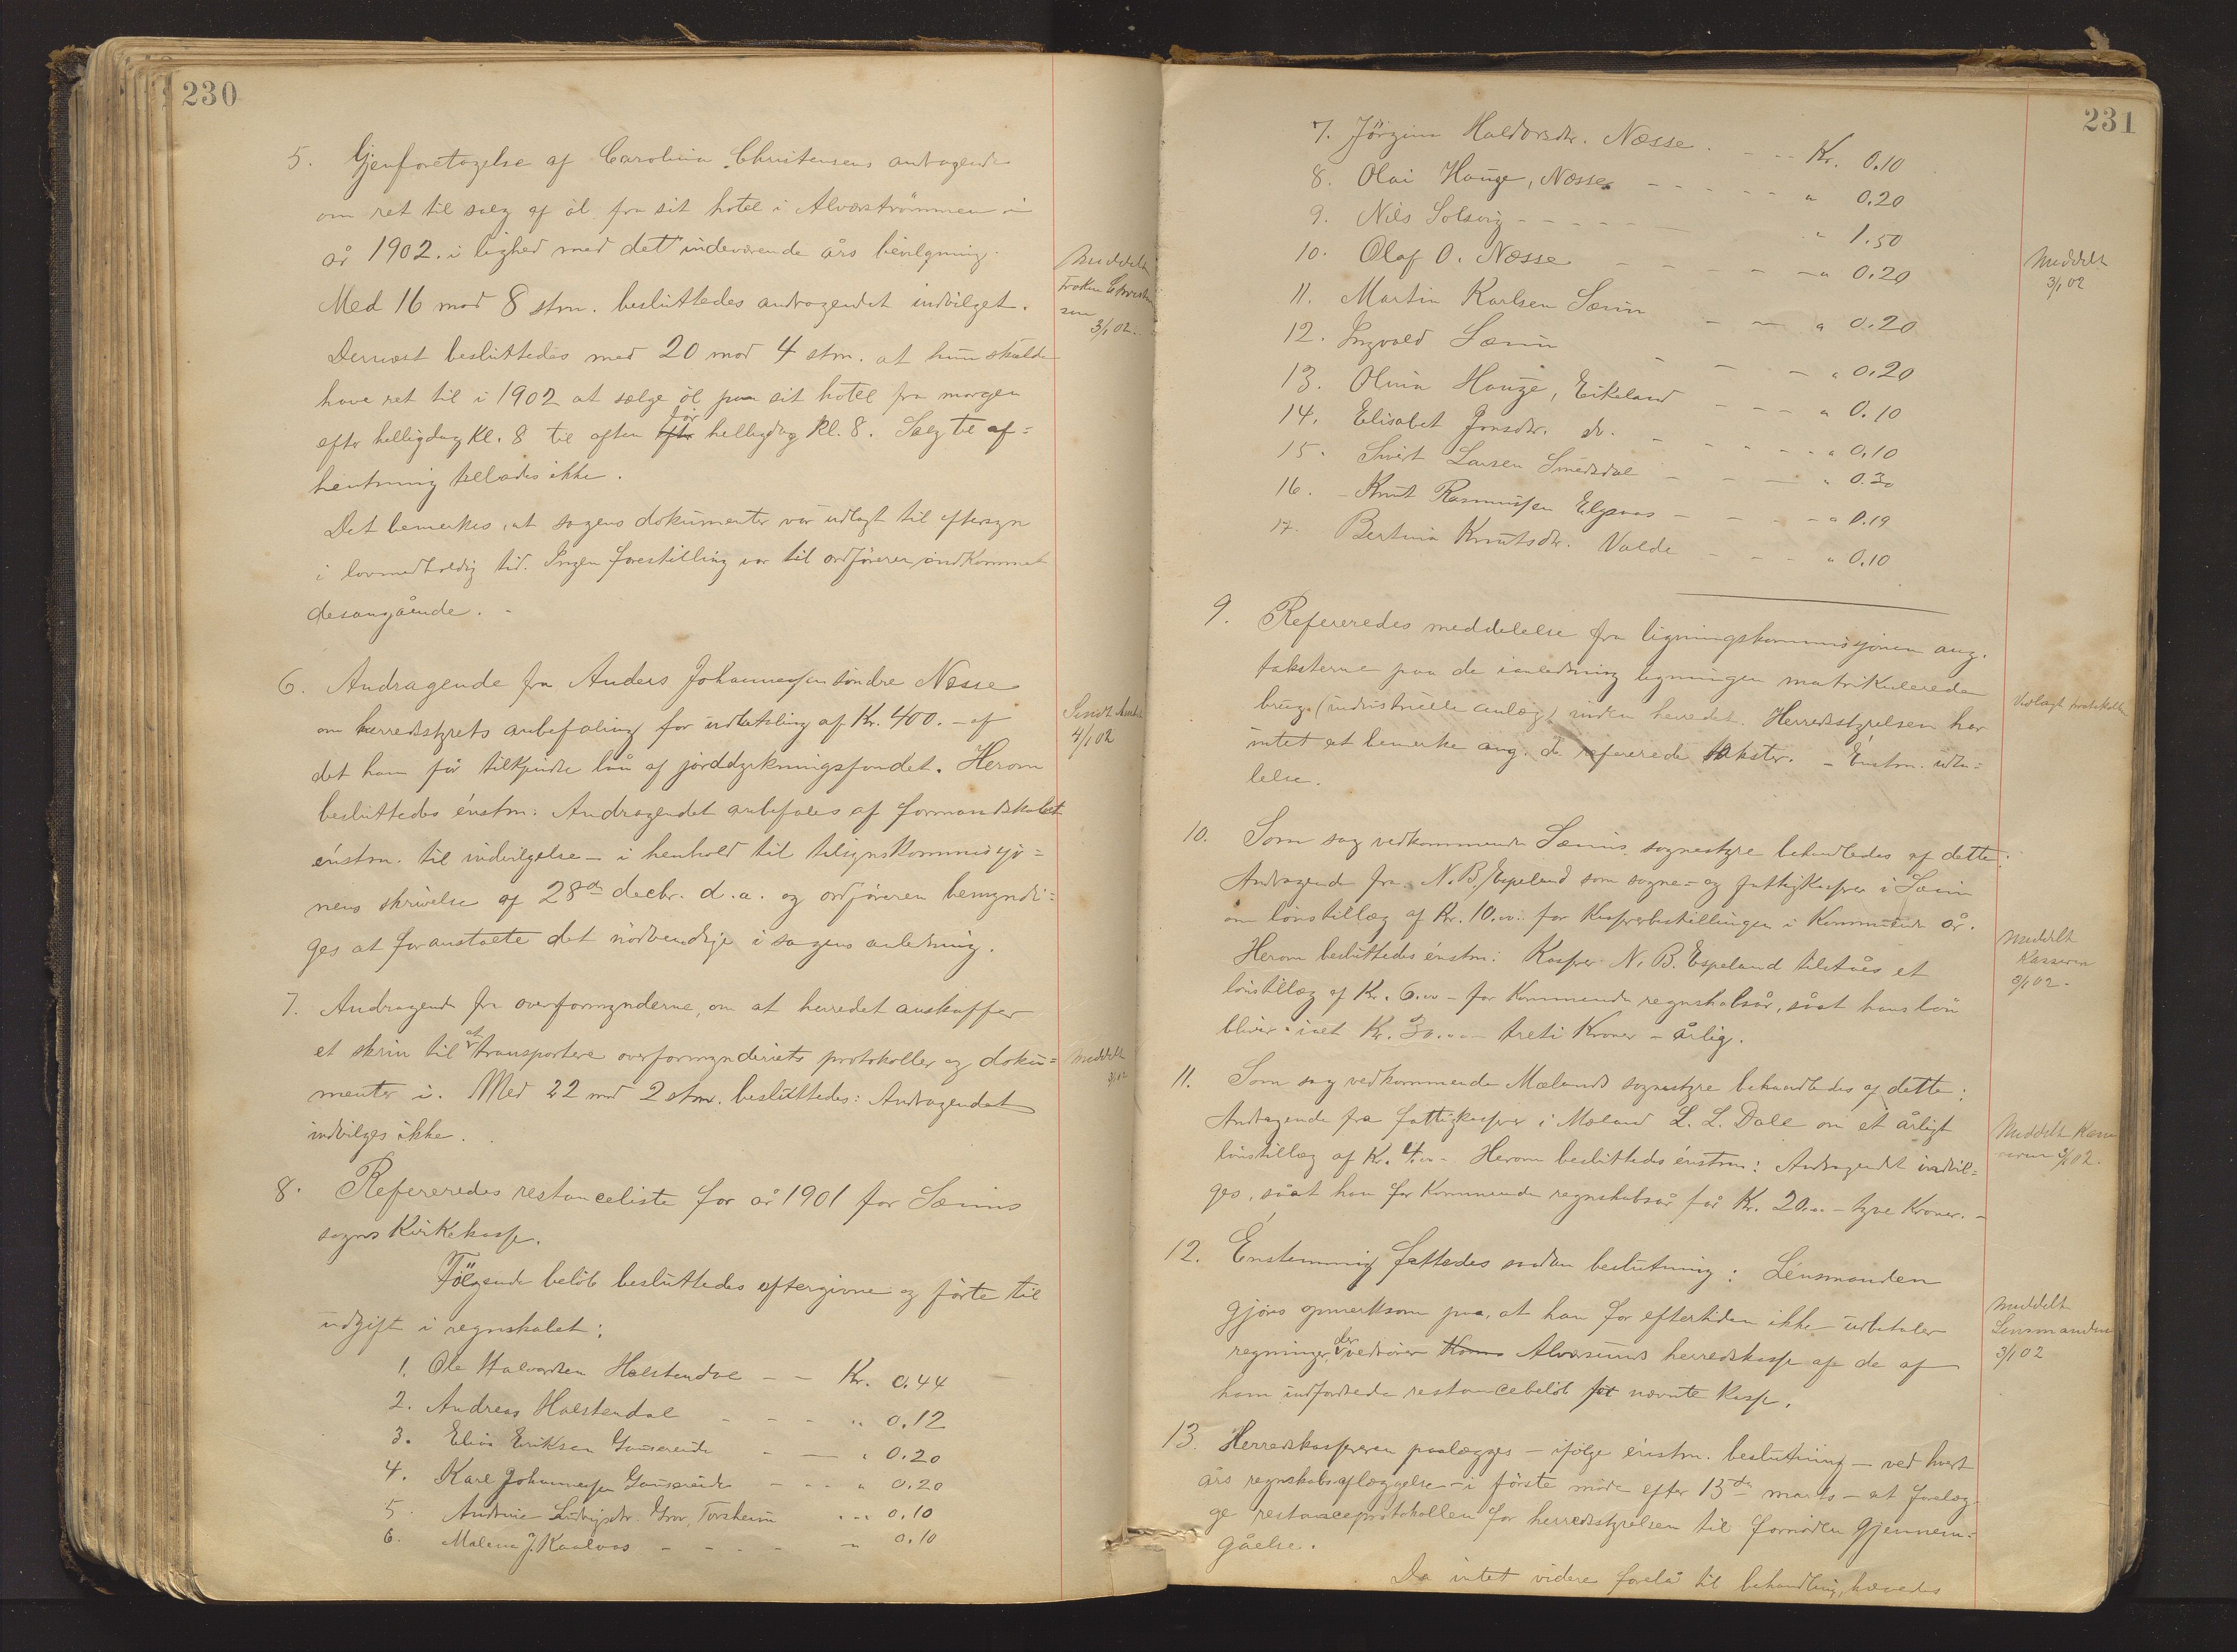 230
5. Gjenforetagelse af Carolina Christensens andragende
om ret til salg af øl fra sit hotel i Alværstrømmen i
år 1902. i lighed med det indeværende års bevilgning.
Med 16 mod 8 stm. besluttedes andragendet indvilget.
Meddelt
Frøken Christen
sen
3/1 02.
Dernæst besluttedes med 20 mod 4 stm. at hun skulde
have ret til i 1902 at sælge øl paa sit hotel fra morgen
efter helligdag kl. 8 til aften før helligdag kl. 8. Salg til af=
hentning tillades ikke.
Det bemerkes, at sagens dokumenter var udlagt til eftersyn
i lovmedholdig tid. Ingen forestilling var til ordføreren indkommet
desangående. -
6. Andragende fra Anders Johannessen søndre Næsse
om herredstyrets anbefaling for udbetaling af Kr. 400. - af
det ham før tilkjendte lån af jorddyrkningsfondet. Herom
besluttedes énstm: Andragendet anbefales af formandskabet
énstm. til indvilgelse - i henhold til tilsynskommissjo=
nens skrivelse af 28de decbr. d.a. og ordføreren bemyndi=
ges at foranstalte det nødvendige i sagens anledning.
Sendt
4/1 02
7. Andragende fra overformynderne, om at herredet anskaffer
et skrin til at transportere overformynderiets protokoller og doku=
menter i. Med 22 mod 2 stm. besluttedes: Andragendet
indvilges ikke.
Meddelt
3/1 02
8. Refereredes restanceliste for år 1901 for Sæims
sogns Kirkekasse.
Følgende beløb besluttedes eftergivne og førte til
udgift i regnskabet:
1. Ole Halvorsen Halstendal - - Kr. 0.44
2. Andreas Halstendal - - - " 0.12
3. Elias Eriksen Gausereide - - " 0.20
4. Karl Johannessen Gausereide - - - " 0.20
5. Andrine Ludvigsdtr. Grov, Torsheim " 0.10
6. Malena J. Kaalaas - - - - " 0.10
231
7. Jørgina Haldorsdtr. Næsse. - - - Kr. 0.10
8. Olai Hauge, Næsse - - - - - " 0.20
9. Nils Solsvig - - - - - " 1.50
10. Olaf O. Næsse - - - - - " 0.20
11. Martin Karlsen Sæim - - " 0.20
12. Ingvald Sæim - - - " 0.20
13. Olina Hauge, Eikeland - - - " 0.10
14. Elisabet Jonsdtr. do. - - - - " 0.10
15. Sivert Larsen Smedsdal - - - " 0.30
16. Knut Rasmussen Elgaaas - - - - " 0.19
17. Bertina Knutsdtr. Valde - - - " 0.10
Meddelt
3/1 02
9. Refereredes meddelelse fra ligningskommissjonen ang.
taksterne paa de i anledning ligningen matrikulerede
brug (industrielle anlæg) inden herredet. Herredsstyrelsen har
intet at bemerke ang. de refererede takster. - Énstm. udta=
lelse.
10. Som sag vedkommende Sæims sognestyre behandledes af dette:
Andragende fra N. B. Espeland som sogne= og fattigkasserer i Sæim
om lønstillæg af Kr. 10.00 for Kassererbestillingen i Kommende år.
Herom besluttedes énstm: Kasserer N. B. Espeland tilståes et
lønstillæg af Kr. 6.00 - for Kommende regnskabsår, såat hans løn
bliver i alt Kr. 30.00 - treti Kroner - årlig.
Meddelt
Kasseren
3/1 02.
11. Som sag vedkommende Mælands sognestyre behandledes af dette:
Andragende fra fattigkasserer i Mæland L. L. Dale om et årligt
lønstillæg af K. 4.00 - Herom besluttedes énstm: Andragendet indvil=
ges, såat han for Kommende regnskabsår får Kr. 20.00 - tyve Kroner. -
Meddelt Kasse
reren 3/1 02.
12. Énstemmig fattedes sådan beslutning: Lénsmanden
gjøres opmerksom paa, at han for eftertiden ikke udbetaler
regninger, der vedrører Alversunds herredskasse af de af
ham indfordrede restancebeløb for nævnte kasse.
Meddelt
Lensmanden
3/1 02
13. Herredskassereren paalægges - ifølge énstm. beslutning - ved hvert
års regnskabsaflæggelse - i første møde efter 15de marts - at forelæg
ge restanceprotokollen for herredsstyrelsen til fornøden gjennem=
gåelse.
Da intet videre forelå til behandling, hævedes